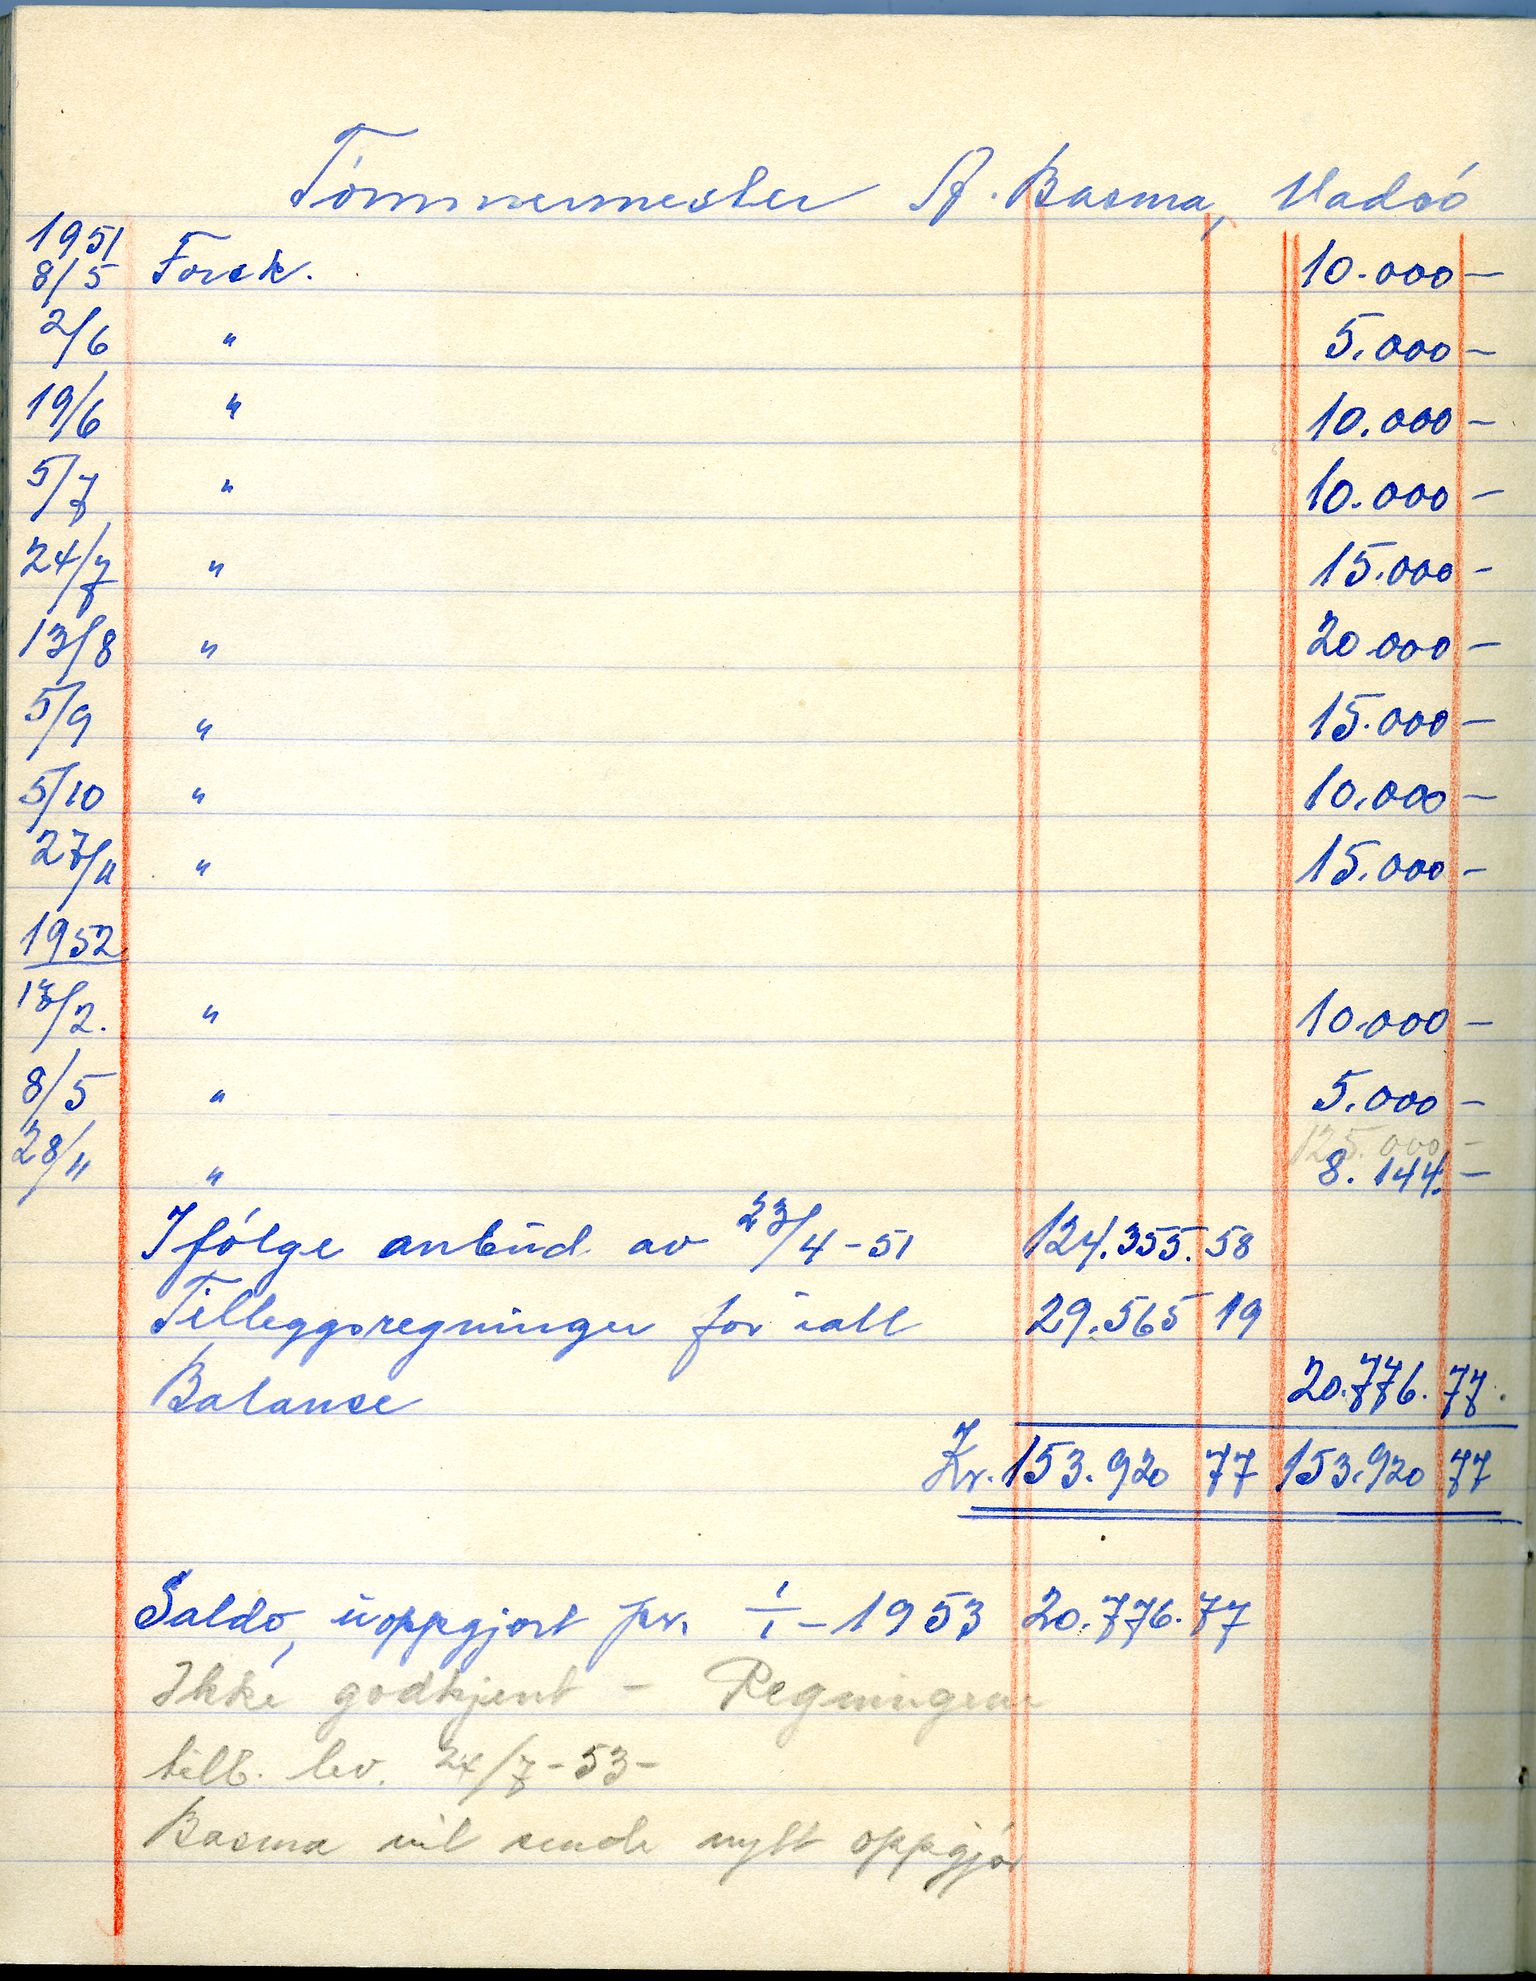 Tömmermester A. Basma, Vadsö
1951
8/5 Forsk. 10.000 —
2/6 " 5.000 —
19/6 " 10.000 —
5/7 " 10.000 —
24/7 " 15.000 —
13/8 " 20.000 —
5/9 " 15.000 —
5/10 " 10.000 —
27/11 " 15.000 —
1952
/2. " 10.000 —
8/5 " 5.000 —
125.000 —
28/11 " 8.144. —
Ifölge anbud av 23/4-51 124.355.58
Tilleggsregninger for iall 29.565 19
Balanse 20.776.77.
Kr. 153.920 77 153.920 77
Saldo, uoppgjort pr. 1/1-1953 20.776.77
Ikke godkjent - Regningene
tilb. lev. 24/7-53-
Basma vil sende nytt oppgjör